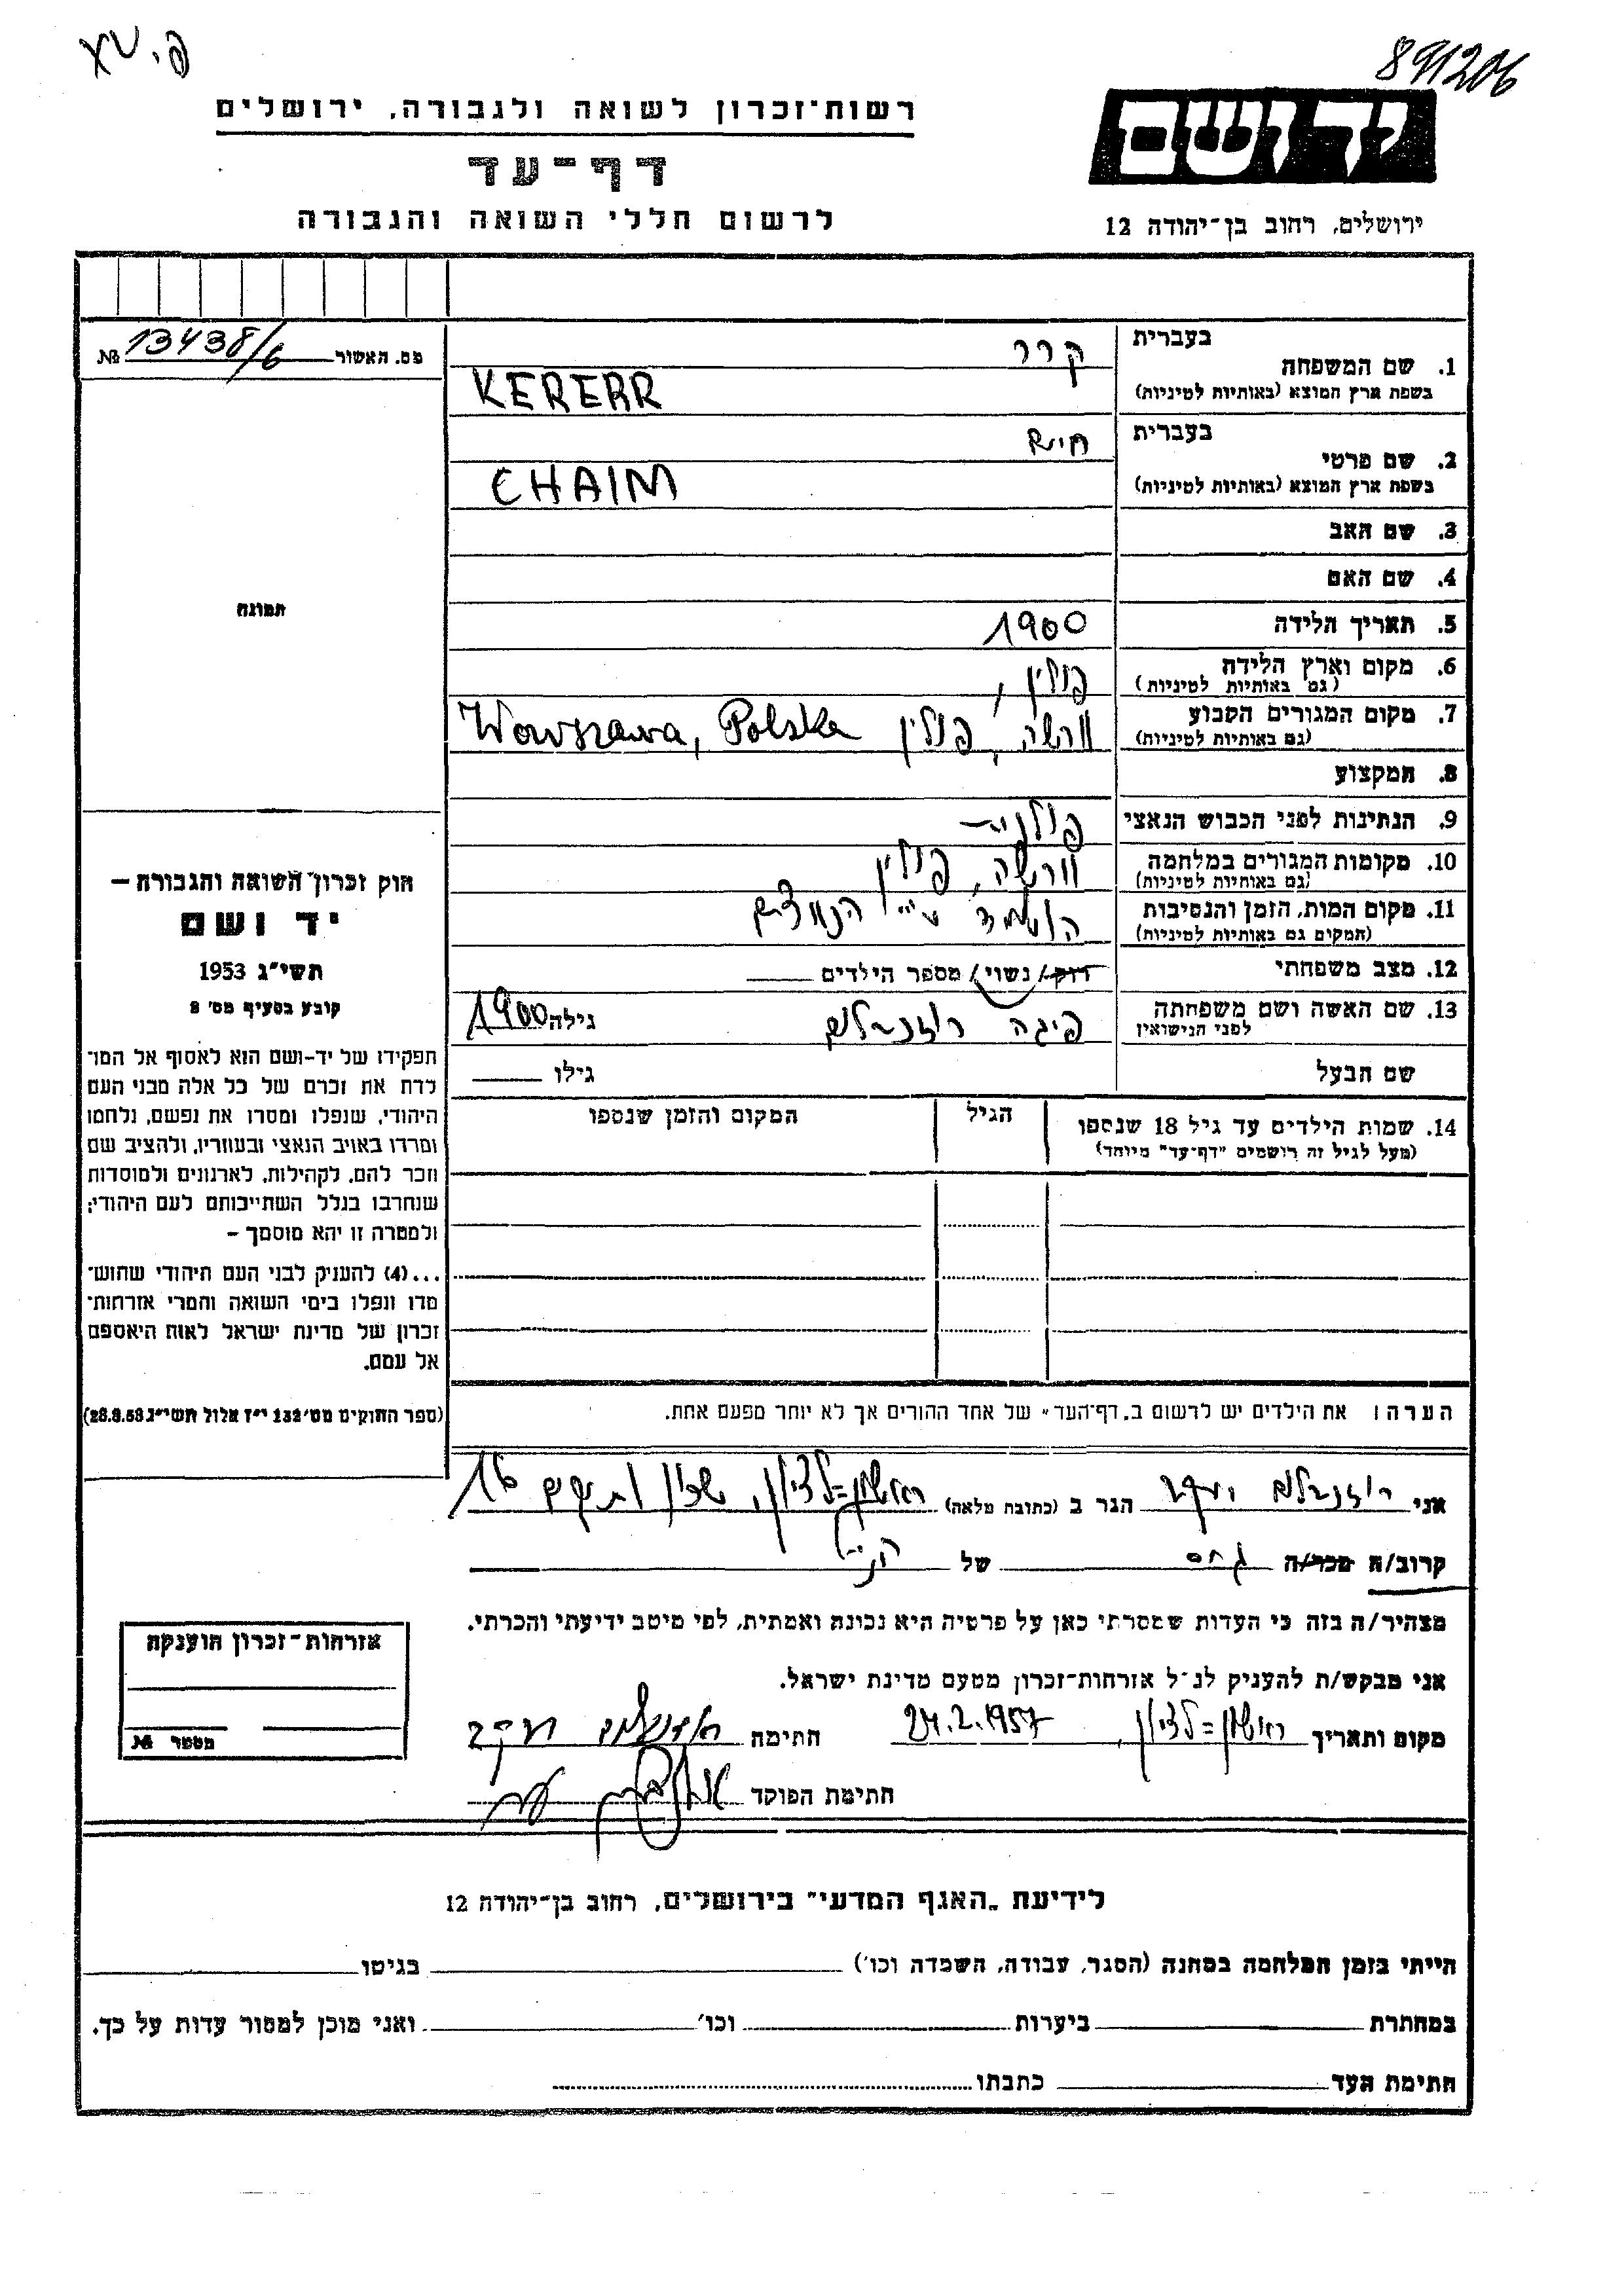 פ.י. XV
891206
רשות־זכרון לשואה ולגבורה, ירושלים
דף־עד
לרשום חללי השואה והגבורה
יד ושם
ירושלים, רחוב בן־יהודה 12
מס. האשור 13438/6 №
1. שם המשפחה בעברית קרר
בשפת ארץ המוצא (באותיות לטיניות) KERERR
2. שם פרטי בעברית חיים
בשפת ארץ המוצא (באותיות לטיניות) CHAIM
3. שם האב
4. שם האם
5. תאריך הלידה 1900
6. מקום וארץ הלידה (גם באותיות לטיניות) פולין,
7. מקום המגורים הקבוע (גם באותיות לטיניות) וורשה, פולין Warszawa, Polska
8. המקצוע
9. הנתינות לפני הכבוש הנאצי פולנית
10. מקומות המגורים במלחמה (גם באותיות לטיניות) וורשה, פולין
11. מקום המות, הזמן והנסיבות (המקום גם באותיות לטיניות) הושמד ע"י הנאצים
12. מצב משפחתי רוק/ נשוי/ מספר הילדים
13. שם האשה ושם משפחתה לפני הנישואין פיגה רוזנבלום גילה 1900
שם הבעל גילו
14. שמות הילדים עד גיל 18 שנספו הגיל המקום והזמן שנספו
(מעל לגיל זה רושמים "דף־עד" מיוחד)
הערה: את הילדים יש לרשום ב„דף־העד" של אחד ההורים אך לא יותר מפעם אחת.
תמונה
חוק זכרון השואה והגבורה –
יד ושם
תשי"ג 1953
קובע בסעיף מס' 8
תפקידו של יד־ושם הוא לאסוף אל המו־
לדת את זכרם של כל אלה מבני העם
היהודי, שנפלו ומסרו את נפשם, נלחמו
ומרדו באויב הנאצי ובעוזריו, ולהציב שם
וזכר להם, לקהילות, לארגונים ולמוסדות
שנחרבו בגלל השתייכותם לעם היהודי;
ולמטרה זו יהא מוסמך –
...(4) להעניק לבני העם היהודי שהוש־
מדו ונפלו בימי השואה והמרי אזרחות־
זכרון של מדינת ישראל לאות היאספם
אל עמם.
(ספר החוקים מס' 132 י"ז אלול תשי"ג 28.8.53)
אני רוזנבלום יעקב הגר ב (כתובת מלאה) ראשון=לציון, שכון ותיקים 16
קרוב/ה מכר/ה גיסו של הנ"ל
מצהיר/ה בזה כי העדות שמסרתי כאן על פרטיה היא נכונה ואמתית, לפי מיטב ידיעתי והכרתי.
אני מבקש/ת להעניק לנ"ל אזרחות־זכרון מטעם מדינת ישראל.
מקום ותאריך ראשון=לציון, 24.2.1957 חתימה רוזנבלום יעקב
חתימת הפוקד
אזרחות־זכרון הוענקה
מספר №
לידיעת „האגף המדעי" בירושלים, רחוב בן־יהודה 12
הייתי בזמן המלחמה במחנה (הסגר, עבודה, השמדה וכו') בגיטו
במחתרת ביערות וכו' ואני מוכן למסור עדות על כך.
חתימת העד כתבתו